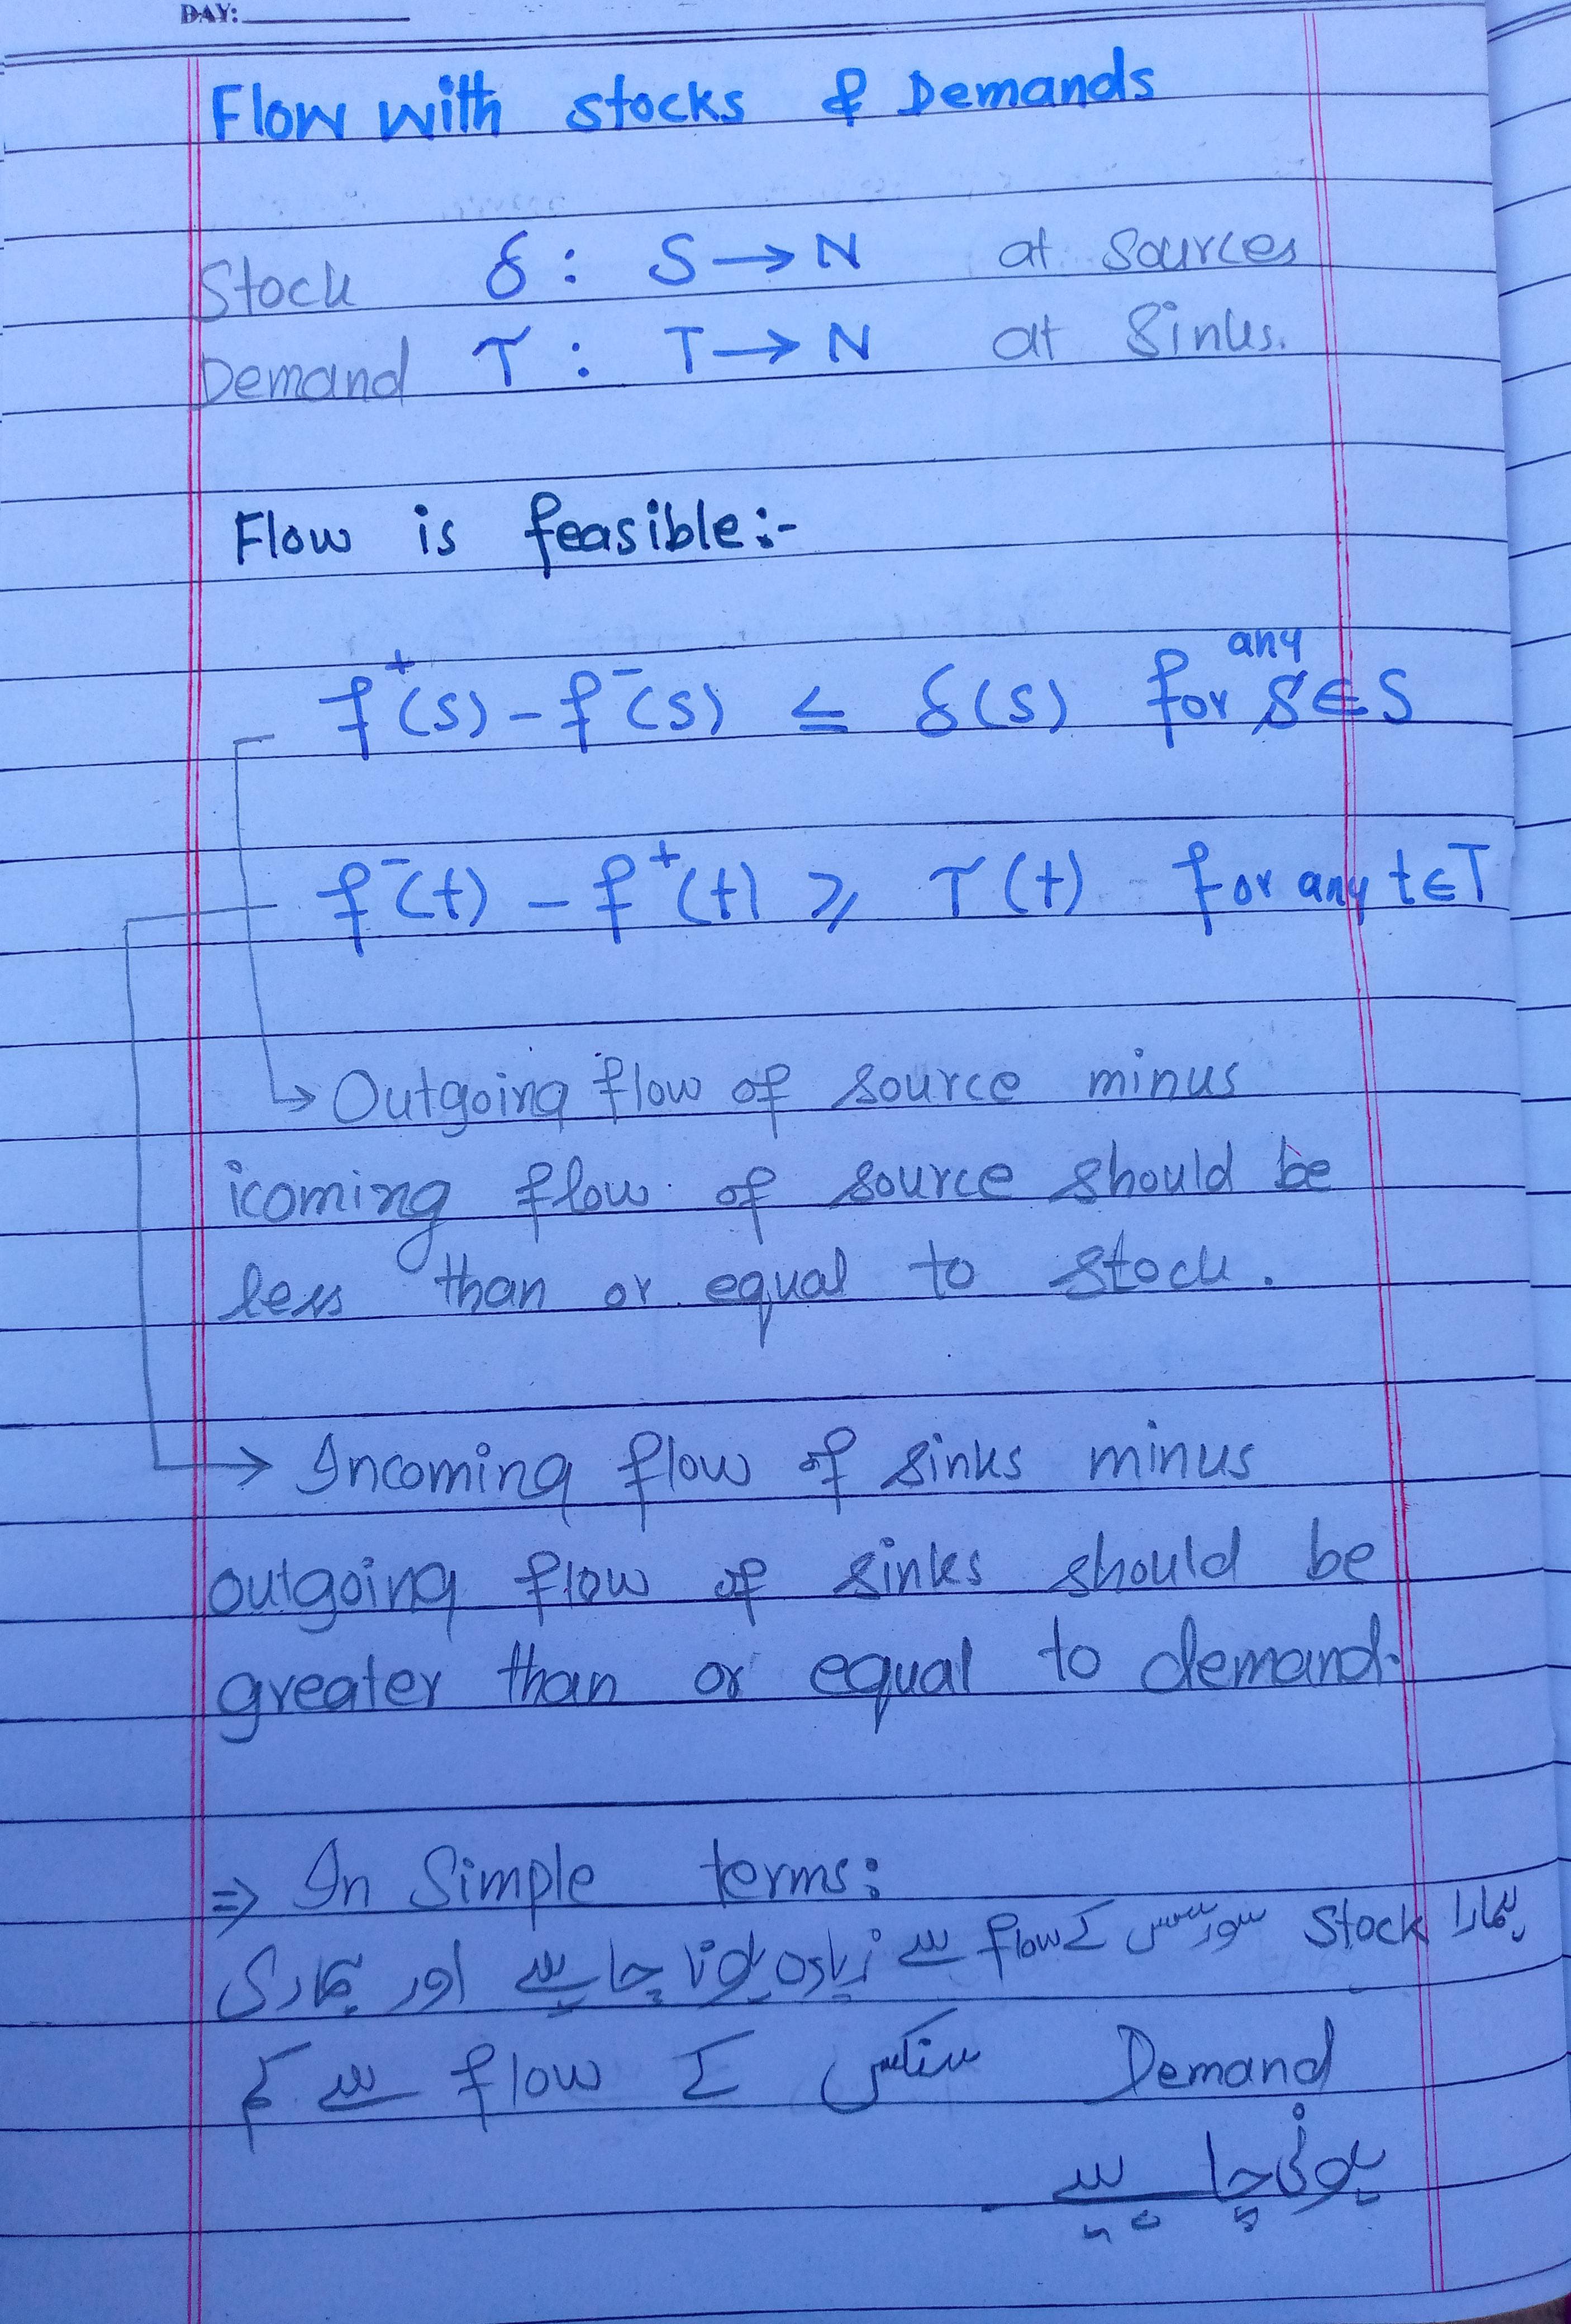 DAY:
Flow with stocks & Demands
Stock δ : S → N at Sources
Demand τ : T → N at Sinks.
Flow is feasible:-
f⁺(s) - f⁻(s) ≤ δ(s) for any s ∈ S
f⁻(t) - f⁺(t) ≥ τ(t) for any t ∈ T
↳ Outgoing flow of source minus
icoming flow of source should be
less than or equal to stock.
→ Incoming flow of sinks minus
outgoing flow of sinks should be
greater than or equal to demand.
⇒ In Simple terms:
ہمارا Stock سورسس کے flow سے زیادہ ہونا چاہیے اور ہماری
Demand سنکس کے flow سے کم
ہونی چاہیے